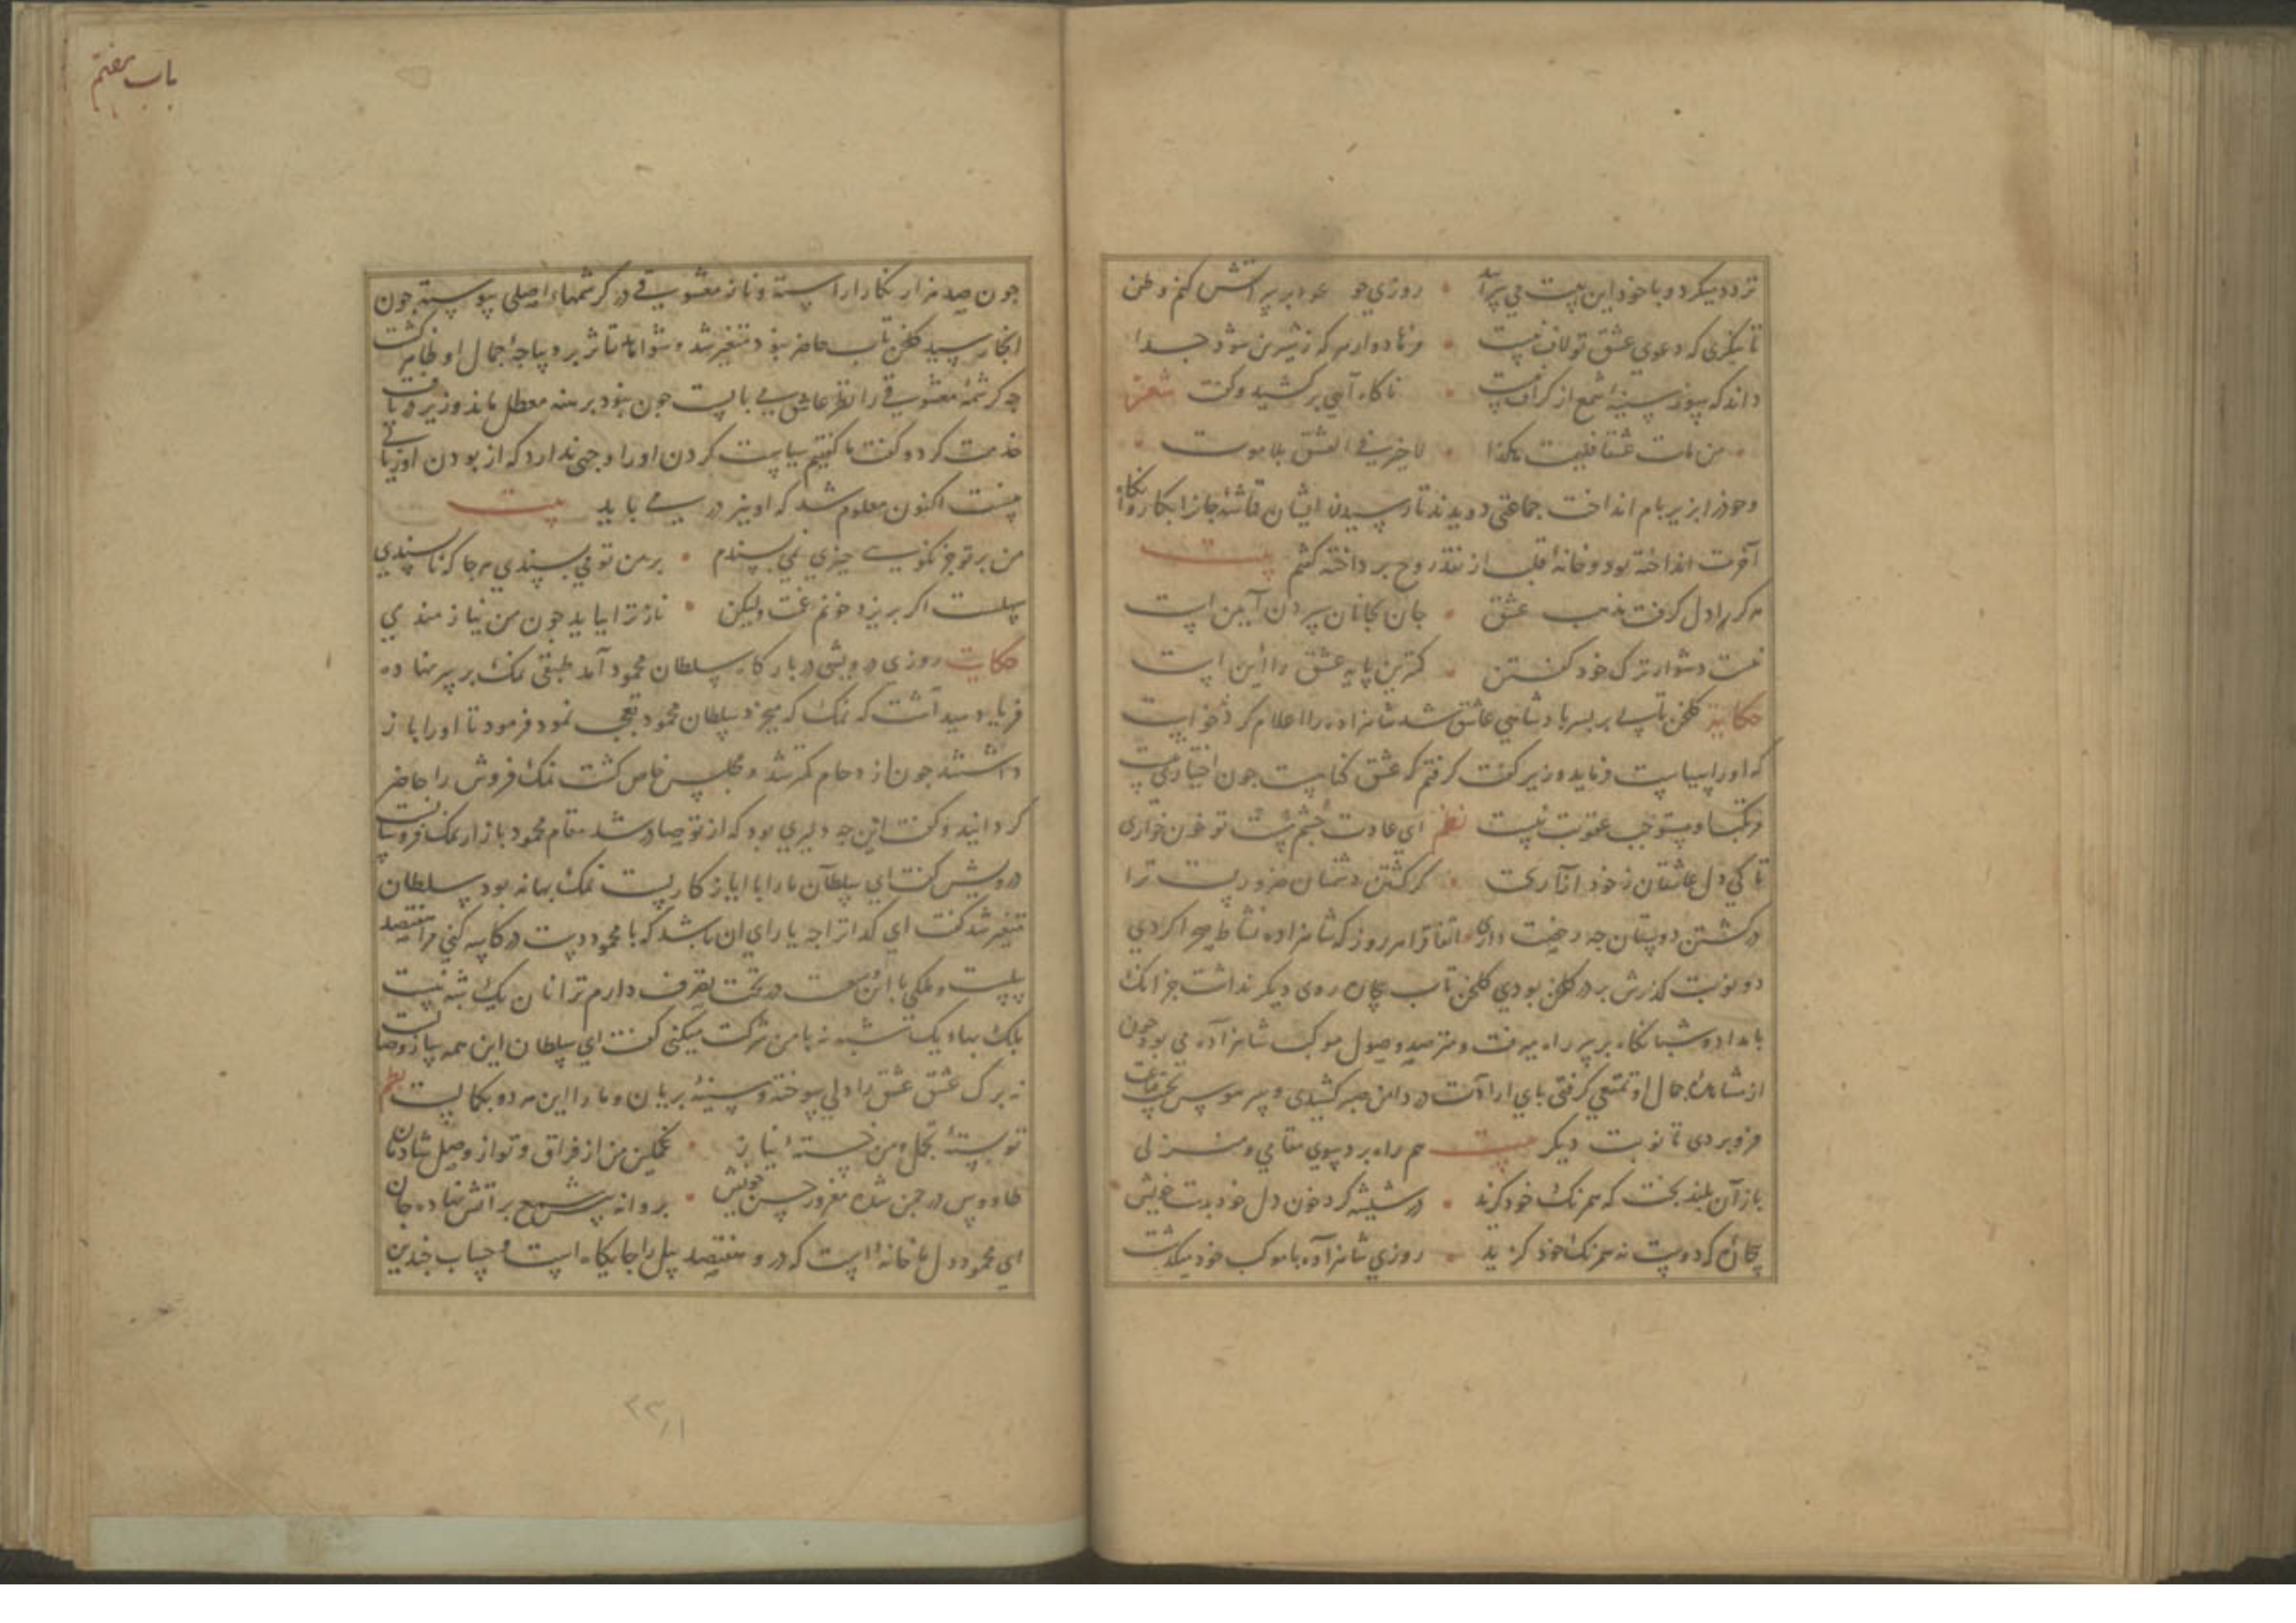 تردد میکرد و با خود این بیت می سرآ • روزی جو عود بر سر آتش کنم وطن
تا ننگری که دعوی عشق تو لاف نیست • فرهادوارم که ز شیرین شود جدا
داند که سوز سینهٔ شمع از کزاف نیست • ناکاه آهی برکشید و کفت شعر
• من مات عشقا فلیمت هکذا • لا خیر فی العشق بلا موت •
و خودرا بزیر بام انداخت جماعتی دویدند تا رسیدن ایشان قماشهٔ جانرا بکاروان
آخرت انداخته بود و خانهٔ قلب از نقد روح برداخته کشم بیت
هر کرا دل کرفت مذهب عشق • جان بجانان سپردن آیین است
نیست دشوار ترک خود کفتن • کمترین پایهٔ عشق را این است
حکایت کلخن تابی بر بسر بادشاهی عاشق شد شاهزاده را اعلام کردند خواست
که اورا سیاست فرماید وزیر کفت کرفتم که عشق کناهست جون اختیاری نیست
مرتکب او مستوجب عقوبت نیست نظم ای عادت جشم مست تو خون خواری
تا کی دل عاشقان ز خود آزاری • کر کشتن دشمنان ضرورست ترا
در کشتن دوستان جه رخصت داری • اتفاقا هر روز که شاهزاده نشاط صحرا کردی
دو نوبت کذرش بر در کلخن بودی کلخن تاب بیجاره روی دیکر نداشت جز انک
بامداد و شبانکاه بر سر راه میرفت و مترصد وصول موکب شاهزاده می بود جون
از مشاهدهٔ جمال او تمتعی کرفتی بای ارادت در دامن صبر کشیدی و سر هوس بجیب قناعت
فروبردی تا نوبت دیکر بیت هم راه برد بسوی مقامی و منزلی
باز آن بلند بخت که همرنک خود کزید • در شیشه کرد خون دل خود بدست خویش
بیجاره که دوست نه همرنک خود کزید • روزی شاهزاده با موکب خود میکذشت
باب هفتم
جون صد هزار نکار اراسته و ناز معشوقی در کرشمهاء اصلی پیوسته جون
انجا رسید کلخن تاب حاضر نبود متغیر شد و تاثر بر دیباجهٔ جمال او ظاهر کشت
جه کرشمهٔ معشوقی را نظر عاشق می بایست جون نبود برهنه معطل ماند وزیر دریافت
خدمت کرد و کفت ما کفتیم سیاست کردن اورا وجهی ندارد که از بودن او زیانی
نیست اکنون معلوم شد که او نیز در می باید بیت
من بر تو جز نکویی جیزی نمی بسندم • بر من تو می بسندی هر جا که ناپسندی
سهلست اکر بریزد خونم غمت ولیکن • ناز ترا بباید جون من نیازمندی
حکایت روزی درویشی در بارکاه سلطان محمود آمد طبقی نمک بر سر نهاده
فریاد میداشت که نمک که میخرد سلطان محمود تعجب نمود فرمود تا اورا باز
داشتند جون ازدحام کمتر شد و مجلس خاص کشت نمک فروش را حاضر
کردانید و کفت این جه دلیری بود که از تو صادر شد مقام محمود بازار نمک فروشانست
درویش کفت ای سلطان مارا با ایاز کاریست نمک بهانه بود سلطان
متغیر شد کفت ای کدا ترا جه یارای ان باشد که با محمود دست در کاسه کنی مرا هفتصد
پیلست و ملکی با ان وسعت در تحت تصرف دارم ترا نان یک شبه نیست
بلک بهاء یک تاشبه نه با من شرکت میکنی کفت ای سلطان این همه ساز وصالست
نه برک عشق عشق را دلی سوخته و سینهٔ بریان و مارا این هر دو بکمالست نظم
تو بستهٔ تجمل و من خستهٔ نیاز • غمکین من از فراق و تو از وصل شادمان
طاووس در جمن شده مغرور حسن خویش • پروانه پیش شمع بر اتش نهاده جان
ای محمود دل ما خانه ایست که درو هفتصد پیل را جایکاه است و حساب جندین